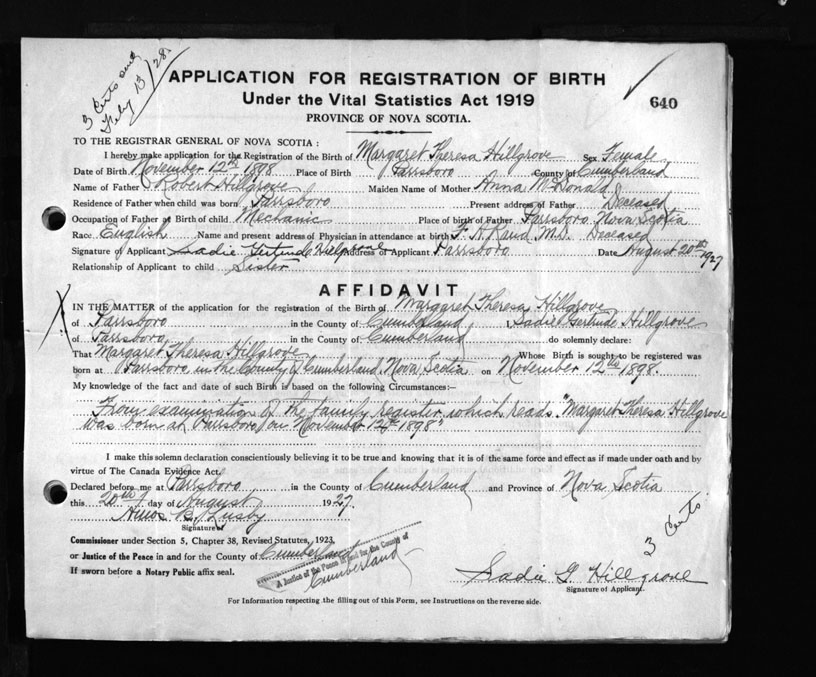 3 Certs sent
Feby 13/28.
APPLICATION FOR REGISTRATION OF BIRTH
Under the Vital Statistics Act 1919
640
PROVINCE OF NOVA SCOTIA.
TO THE REGISTRAR GENERAL OF NOVA SCOTIA :
I hereby make application for the Registration of the Birth of Margaret Theresa Hillgrove Sex Female
Date of Birth November 12th 1898 Place of Birth Parrsboro County of Cumberland
Name of Father Robert Hillgrove Maiden Name of Mother Anna McDonald
Residence of Father when child was born Parrsboro Present address of Father Deceased
Occupation of Father at Birth of child Mechanic Place of birth of Father Parrsboro Nova Scotia
Race English Name and present address of Physician in attendance at birth F. A. Rand M.D. Deceased
Signature of Applicant Sadie Gertrude Hillgrove Address of Applicant Parrsboro Date August 20th 1927
Relationship of Applicant to child Sister
AFFIDAVIT
IN THE MATTER of the application for the registration of the Birth of Margaret Theresa Hillgrove
of Parrsboro in the County of Cumberland I, Sadie Gertrude Hillgrove
of Parrsboro in the County of Cumberland do solemnly declare:
That Margaret Theresa Hillgrove Whose Birth is sought to be registered was
born at Parrsboro in the County of Cumberland, Nova Scotia on November 12th 1898.
My knowledge of the fact and date of such Birth is based on the following Circumstances:—
From examination of the family register, which reads. "Margaret Theresa Hillgrove
was born at Parrsboro on November 12th 1898"
I make this solemn declaration conscientiously believing it to be true and knowing that it is of the same force and effect as if made under oath and by
virtue of The Canada Evidence Act.
Declared before me at Parrsboro in the County of Cumberland and Province of Nova Scotia
this 20th day of August 1927.
B. Lusby
Signature
3 Certs.
Commissioner under Section 5, Chapter 38, Revised Statutes, 1923,
or Justice of the Peace in and for the County of Cumberland
A Justice of the Peace in and for the County of
Cumberland
If sworn before a Notary Public affix seal.
Sadie G. Hillgrove
Signature of Applicant.
For Information respecting the filling out of this Form, see Instructions on the reverse side.